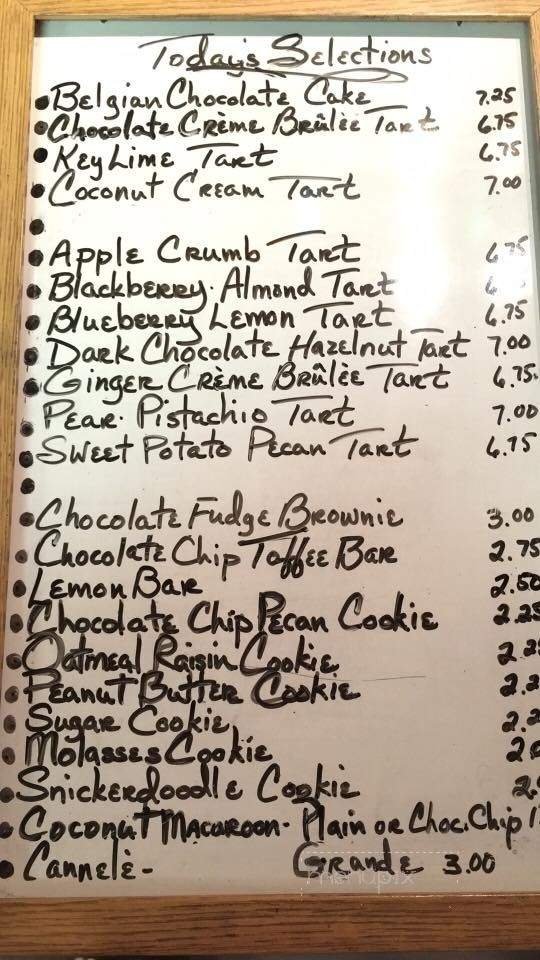 Today's Selections
• Belgian Chocolate Cake 7.25
• Chocolate Crème Brûlèe Tart 6.75
• Key Lime Tart 6.75
• Coconut Cream Tart 7.00
•
• Apple Crumb Tart 6.75
• Blackberry·Almond Tart
• Blueberry Lemon Tart 6.75
• Dark Chocolate Hazelnut Tart 7.00
• Ginger Crème Brûlèe Tart 6.75
• Pear·Pistachio Tart 7.00
• Sweet Potato Pecan Tart 6.75
•
• Chocolate Fudge Brownie 3.00
• Chocolate Chip Toffee Bar 2.75
• Lemon Bar 2.50
• Chocolate Chip Pecan Cookie 2.25
• Oatmeal Raisin Cookie
• Peanut Butter Cookie
• Sugar Cookie
• Molasses Cookie
• Snickerdoodle Cookie
• Coconut Macaroon- Plain or Choc. Chip
• Cannelè- Grande 3.00
menupix